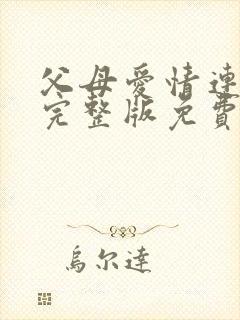 父母爱情連
完整版免費
烏尔達